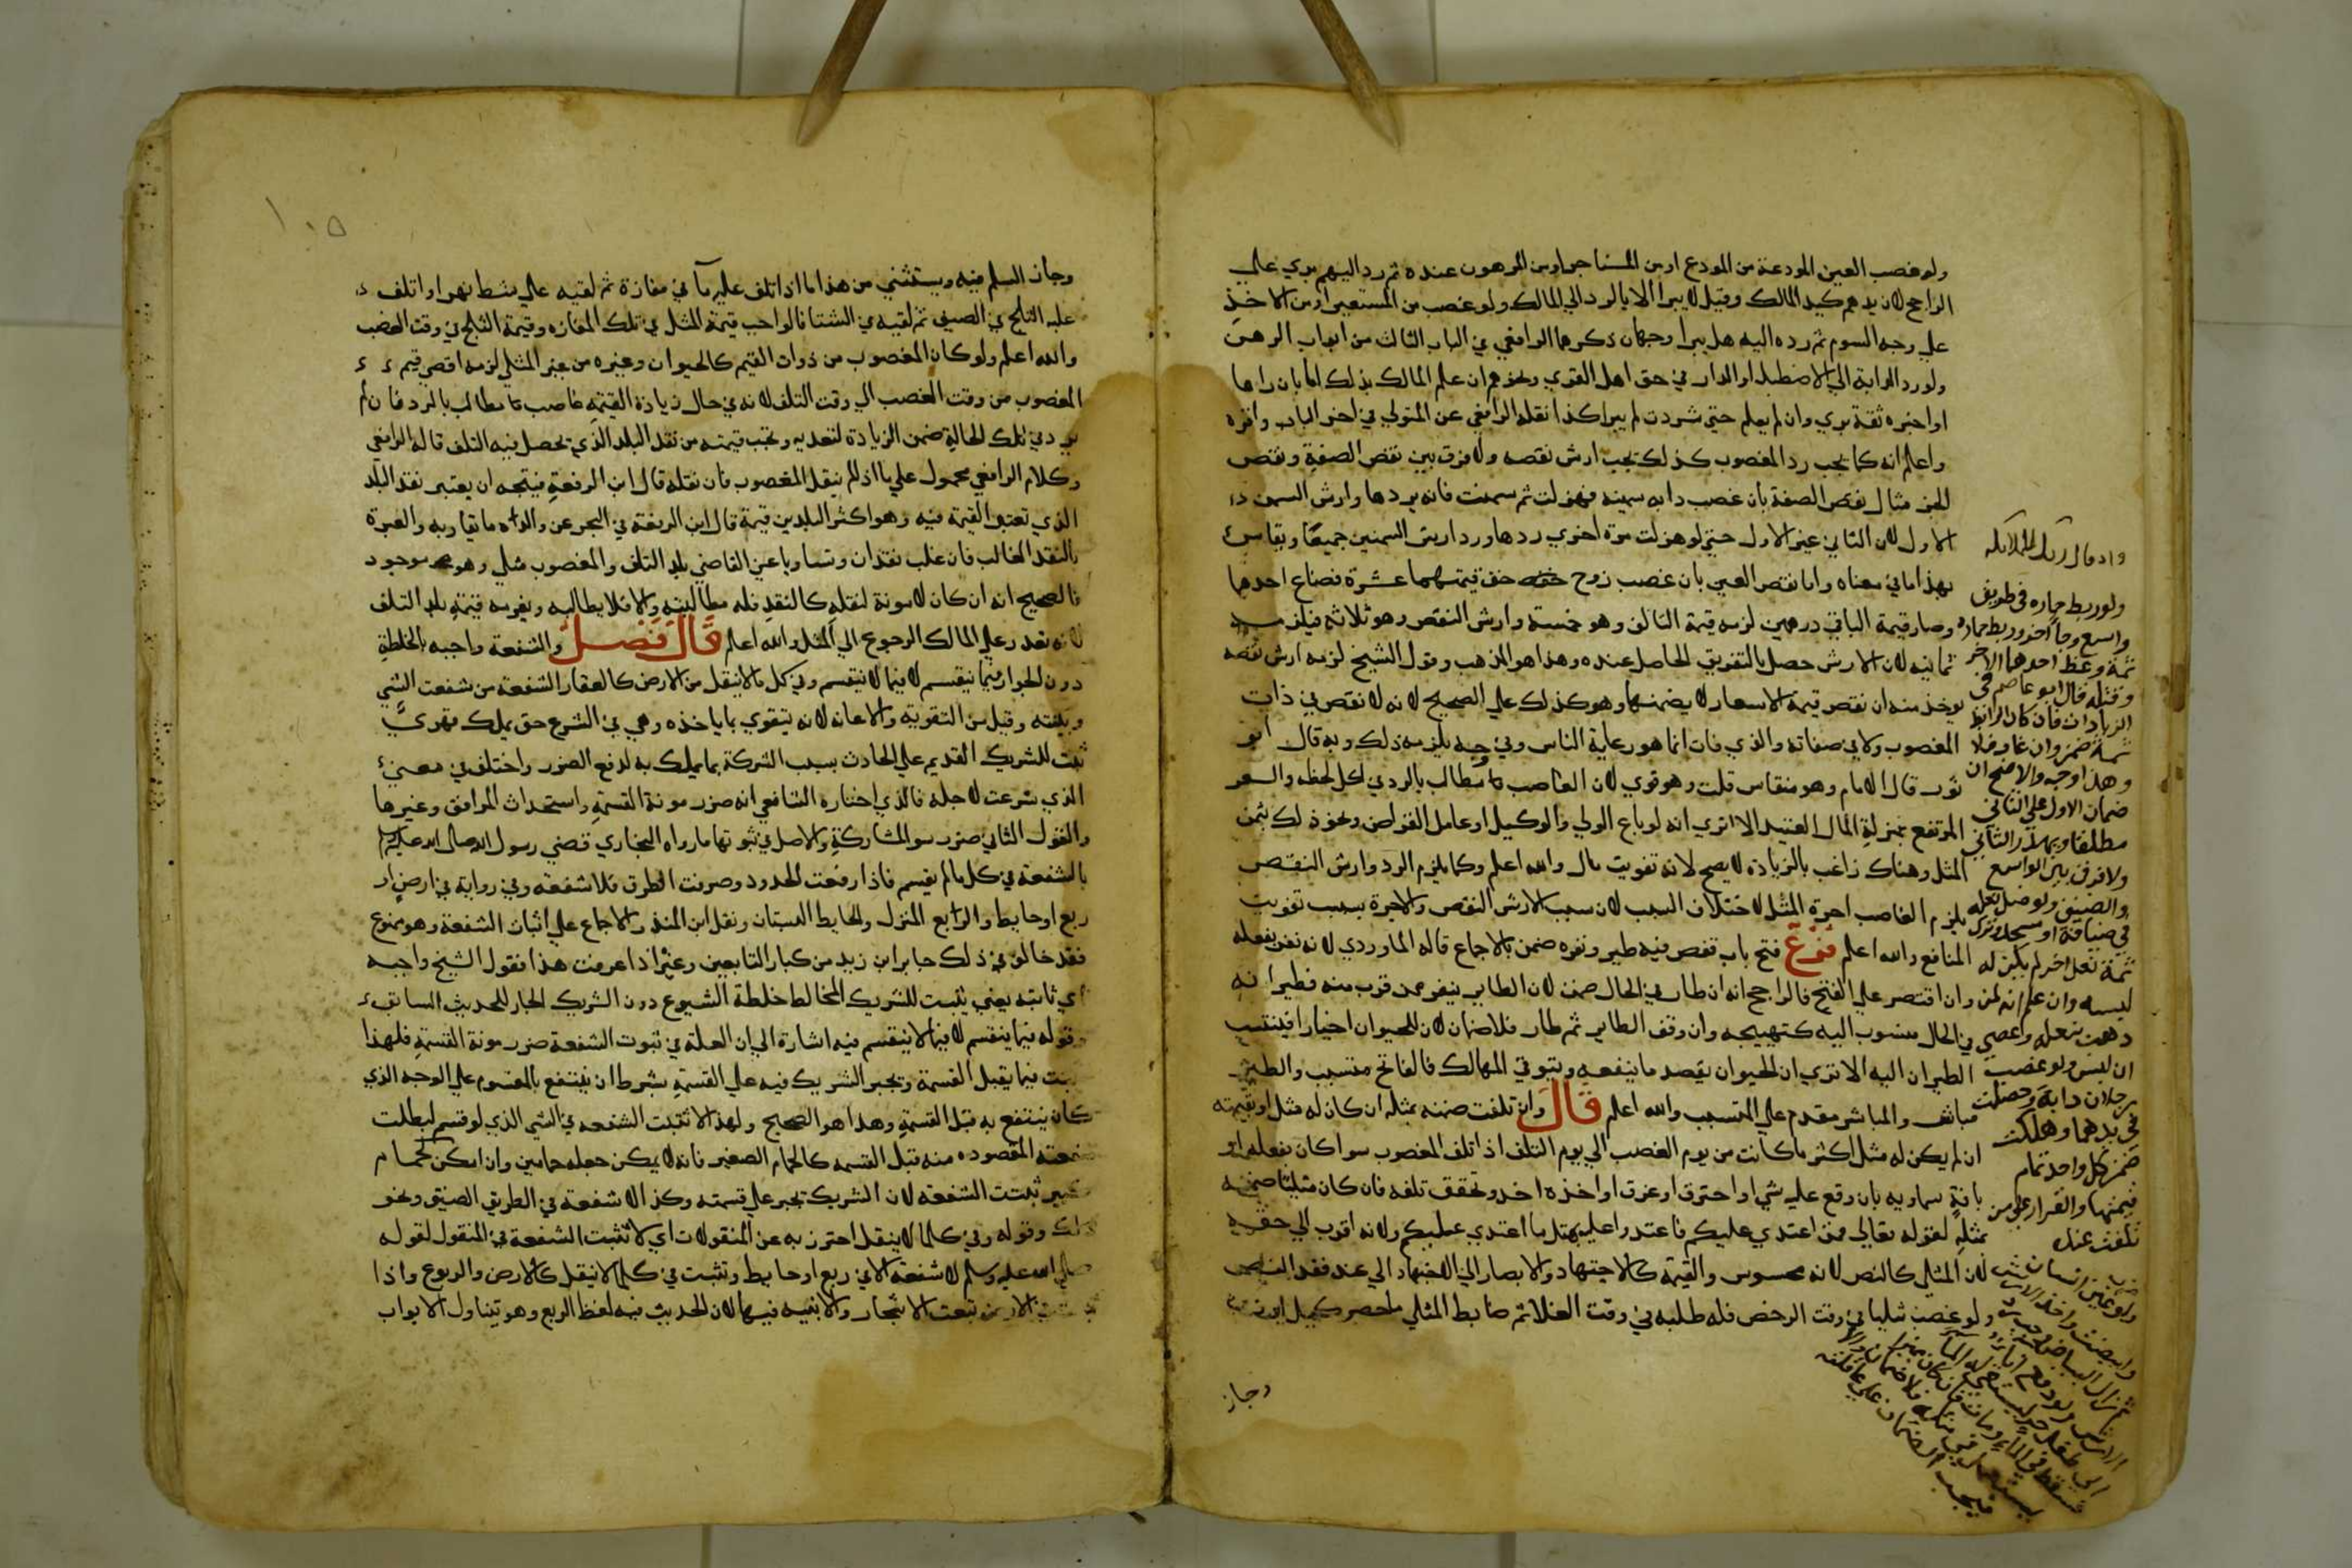 ولو غصب العين المودعة من المودع او من المستاجر او من المرهون عنده ثم رد اليهم بري علي
الراجح لان يدهم كيد المالك وقيل لا يبرا الا بالرد الي المالك ولو غصب من المستعير او من الاخذ
علي وجه السوم ثم رده اليه هل يبرا وجهان ذكرهما الرافعي في الباب الثالث من ابواب الرهن
ولو رد الدابة الي الاصطبل او الدار في حق اهل القري ونحوهم ان علم المالك بذلك اما بان راها
او اخبره ثقة بري وان لم يعلم حتي شردت لم يبرا كذا نقله الرافعي عن المتولي في اخر الباب واقره
واعلم انه كما يجب رد المغصوب كذلك يجب ارش نقصه ولا فرق بين نقص الصفة ونقص
العين مثال نقص الصفة بان غصب دابه سمينه فهزلت ثم سمنت فانه يردها وارش السمن
الاول لان الثاني غير الاول حتي لو هزلت مرة اخري ردها ورد ارش السمنين جميعا ويقاس
بهذا ما في معناه واما نقص العين بان غصب زوج خف قيمتهما عشرة فضاع احدهما
وصار قيمة الباقي درهمين لزمه قيمة التالف وهو خمسة وارش النقص وهو ثلاثه فيلزمه
ثمانيه لان الارش حصل بالتفريق الحاصل عنده وهذا هو المذهب وقول الشيخ لزمه ارش نقصه
يوخذ منه ان نقص قيمة الاسعار لا يضمنها وهو كذلك علي الصحيح لانه لا نقص في ذات
المغصوب ولا في صفاته والذي فات انما هو رغبة الناس وفي وجه يلزمه ذلك وبه قال ابو
ثور قال الامام وهو منقاس قلت وهو قوي لان الغاصب مطالب بالرد في كل لحظه والسعر
المرتفع بمنزلة المال العتيد الا تري انه لو باع الولي والوكيل او عامل القراض ونحو ذلك بثمن
المثل وهناك راغب بالزيادة لا يصح لانه تفويت مال والله اعلم وكما يلزم الرد وارش النقص
يلزم الغاصب اجرة المثل لاختلاف السبب لان سبب الارش النقص والاجرة بسبب تفويت
المنافع والله اعلم فرع فتح باب قفص فيه طير ونفره ضمن بالاجماع قاله الماوردي لانه نفر بفعله
وان اقتصر علي الفتح فالراجح انه ان طار في الحال ضمن لان الطاير ينفر ممن قرب منه فطيرانه
في الحال منسوب اليه كتهييجه وان وقف الطاير ثم طار فلا ضمان لان للحيوان اختيارا فينتسب
الطيران اليه الا تري ان الحيوان يقصد ما ينفعه ويتوقي المهالك فالفاتح متسبب والطير
مباشر والمباشر مقدم علي المتسبب والله اعلم قال وان تلفت ضمنه بمثله ان كان له مثل او بقيمته
ان لم يكن له مثل اكثر ما كانت من يوم الغصب الي يوم التلف اذا تلف المغصوب سوا كان بفعله او
بافة سماويه بان وقع عليه شي او احترق او غرق او اخذه احد وتحقق تلفه فان كان مثليا ضمنه
بمثله لقوله تعالي فمن اعتدي عليكم فاعتدوا عليه بمثل ما اعتدي عليكم ولانه اقرب الي حقه
لان المثل كالنص لانه محسوس والقيمة كالاجتهاد ولا يصار الي الاجتهاد الي عند فقد النص
ولو غصب مثليا في وقت الرخص فله طلبه في وقت الغلا ثم ضابط المثلي ما حصر كيل او وزن
وجاز
واذ قال ربك للملائكه
ولو ربط حماره في طريق
واسع وجا اخر وربط حماره
ثمة وعض احدهما الاخر
وقتله قال ابو عاصم في
الزيادات فان كان الرابط
ثمة ضمن وان غاب فلا
وهذا اوجه والاصح ان
ضمان الاول علي الثاني
مطلقا ويهدر الثاني
ولا فرق بين الواسع
والضيق ولو ضل نعله
في ضيافة او مسجد وترك
ثمة نعل اخر لم يكن له
لبسه وان علم انه لمن
ذهب بنعله وعصي
ان لبس ولو غصب
رجلان دابة وحصلت
في يدهما وهلكت
ضمن كل واحد تمام
قيمتها والقرار علي من
تلفت عنده
وجاز السلم فيه ويستثني من هذا ما اذا اتلف عليه ما في مفازة ثم لقيه علي شط نهر او اتلف
عليه الثلج في الصيف ثم لقيه في الشتا فالواجب قيمة المثل في تلك المفازه وقيمة الثلج في وقت الغصب
والله اعلم ولو كان المغصوب من ذوات القيم كالحيوان وغيره من غير المثلي لزمه اقصي قيم
المغصوب من وقت الغصب الي وقت التلف لانه في حال زيادة القيمه غاصب مطالب بالرد فان لم
يرد في تلك الحالة ضمن الزيادة لتعديه وتجب قيمته من نقد البلد الذي تحصل فيه التلف قاله الرافعي
وكلام الرافعي محمول علي ما اذا لم ينقل المغصوب فان نقله قال ابن الرفعة فيتجه ان يعتبر نقد البلد
الذي تعتبر القيمة فيه وهو اكثر البلدين قيمة قال ابن الرفعة في البحر عن والده ما يقاربه والعبرة
بالنقد الغالب فان غلب نقدان وتساويا عين القاضي بلد التلف والمغصوب مثلي وهو موجود
فالصحيح انه ان كان لا مونة لنقله كالنقد فله مطالبته والا فلا يطالبه ويغرمه قيمة بلد التلف
لانه تعذر علي المالك الرجوع الي المثل والله اعلم قال فصل والشفعة واجبه بالخلطة
دون الجوار فيما ينقسم لا فيما لا ينقسم وفي كل ما لا ينقل من الارض كالعقار الشفعة من شفعت الشي
وثنيته وقيل من التقوية والاعانه لانه يتقوي بما ياخذه وهي في الشرع حق يملك قهري
ثبت للشريك القديم علي الحادث بسبب الشركة بما يملك به لدفع الضرر واختلف في معني
الذي شرعت لاجله فالذي اختاره الشافعي انه ضرر مونة القسمة واستحداث المرافق وغيرها
والقول الثاني ضرر سو المشاركة والاصل في ثبوتها ما رواه البخاري قضي رسول الله صلي الله عليه وسلم
بالشفعة في كل ما لم يقسم فاذا وقعت الحدود وصرفت الطرق فلا شفعه وفي رواية في ارض او
ربع او حايط والرابع المنزل والحايط البستان ونقل ابن المنذر الاجماع علي اثبات الشفعة وهو ممنوع
فقد خالف في ذلك جابر ابن زيد من كبار التابعين وغيره اذا عرفت هذا فقول الشيخ واجبه
اي ثابته يعني يثبت للشريك المخالط خلطة الشيوع دون الشريك الجار للحديث السابق
وقوله فيما ينقسم لا فيما لا ينقسم فيه اشارة الي ان العلة في ثبوت الشفعة ضرر مونة القسمة فلهذا
يثبت فيما يقبل القسمة ويجبر الشريك فيه علي القسمة بشرط ان ينتفع بالمقسوم علي الوجه الذي
كان ينتفع به قبل القسمة وهذا هو الصحيح ولهذا لا تثبت الشفعه في الشي الذي لو قسم لبطلت
منفعته المقصوده منه قبل القسمه كالحمام الصغير فانه لا يمكن جعله حمامين وان امكن كحمام
كبير ثبتت الشفعه لان الشريك تجبر علي قسمته وكذا لا شفعة في الطريق الضيق ونحو
ذلك وقوله وفي كلما لا ينقل احترز به عن المنقولات اي لا تثبت الشفعة في المنقول لقوله
صلي الله عليه وسلم لا شفعة الا في ربع او حايط وتثبت في كلما لا ينقل كالارض والربوع واذا
ثبتت في الارض تبعت الاشجار والابنيه فيها لان الحديث فيه لفظ الربع وهو يتناول الابواب